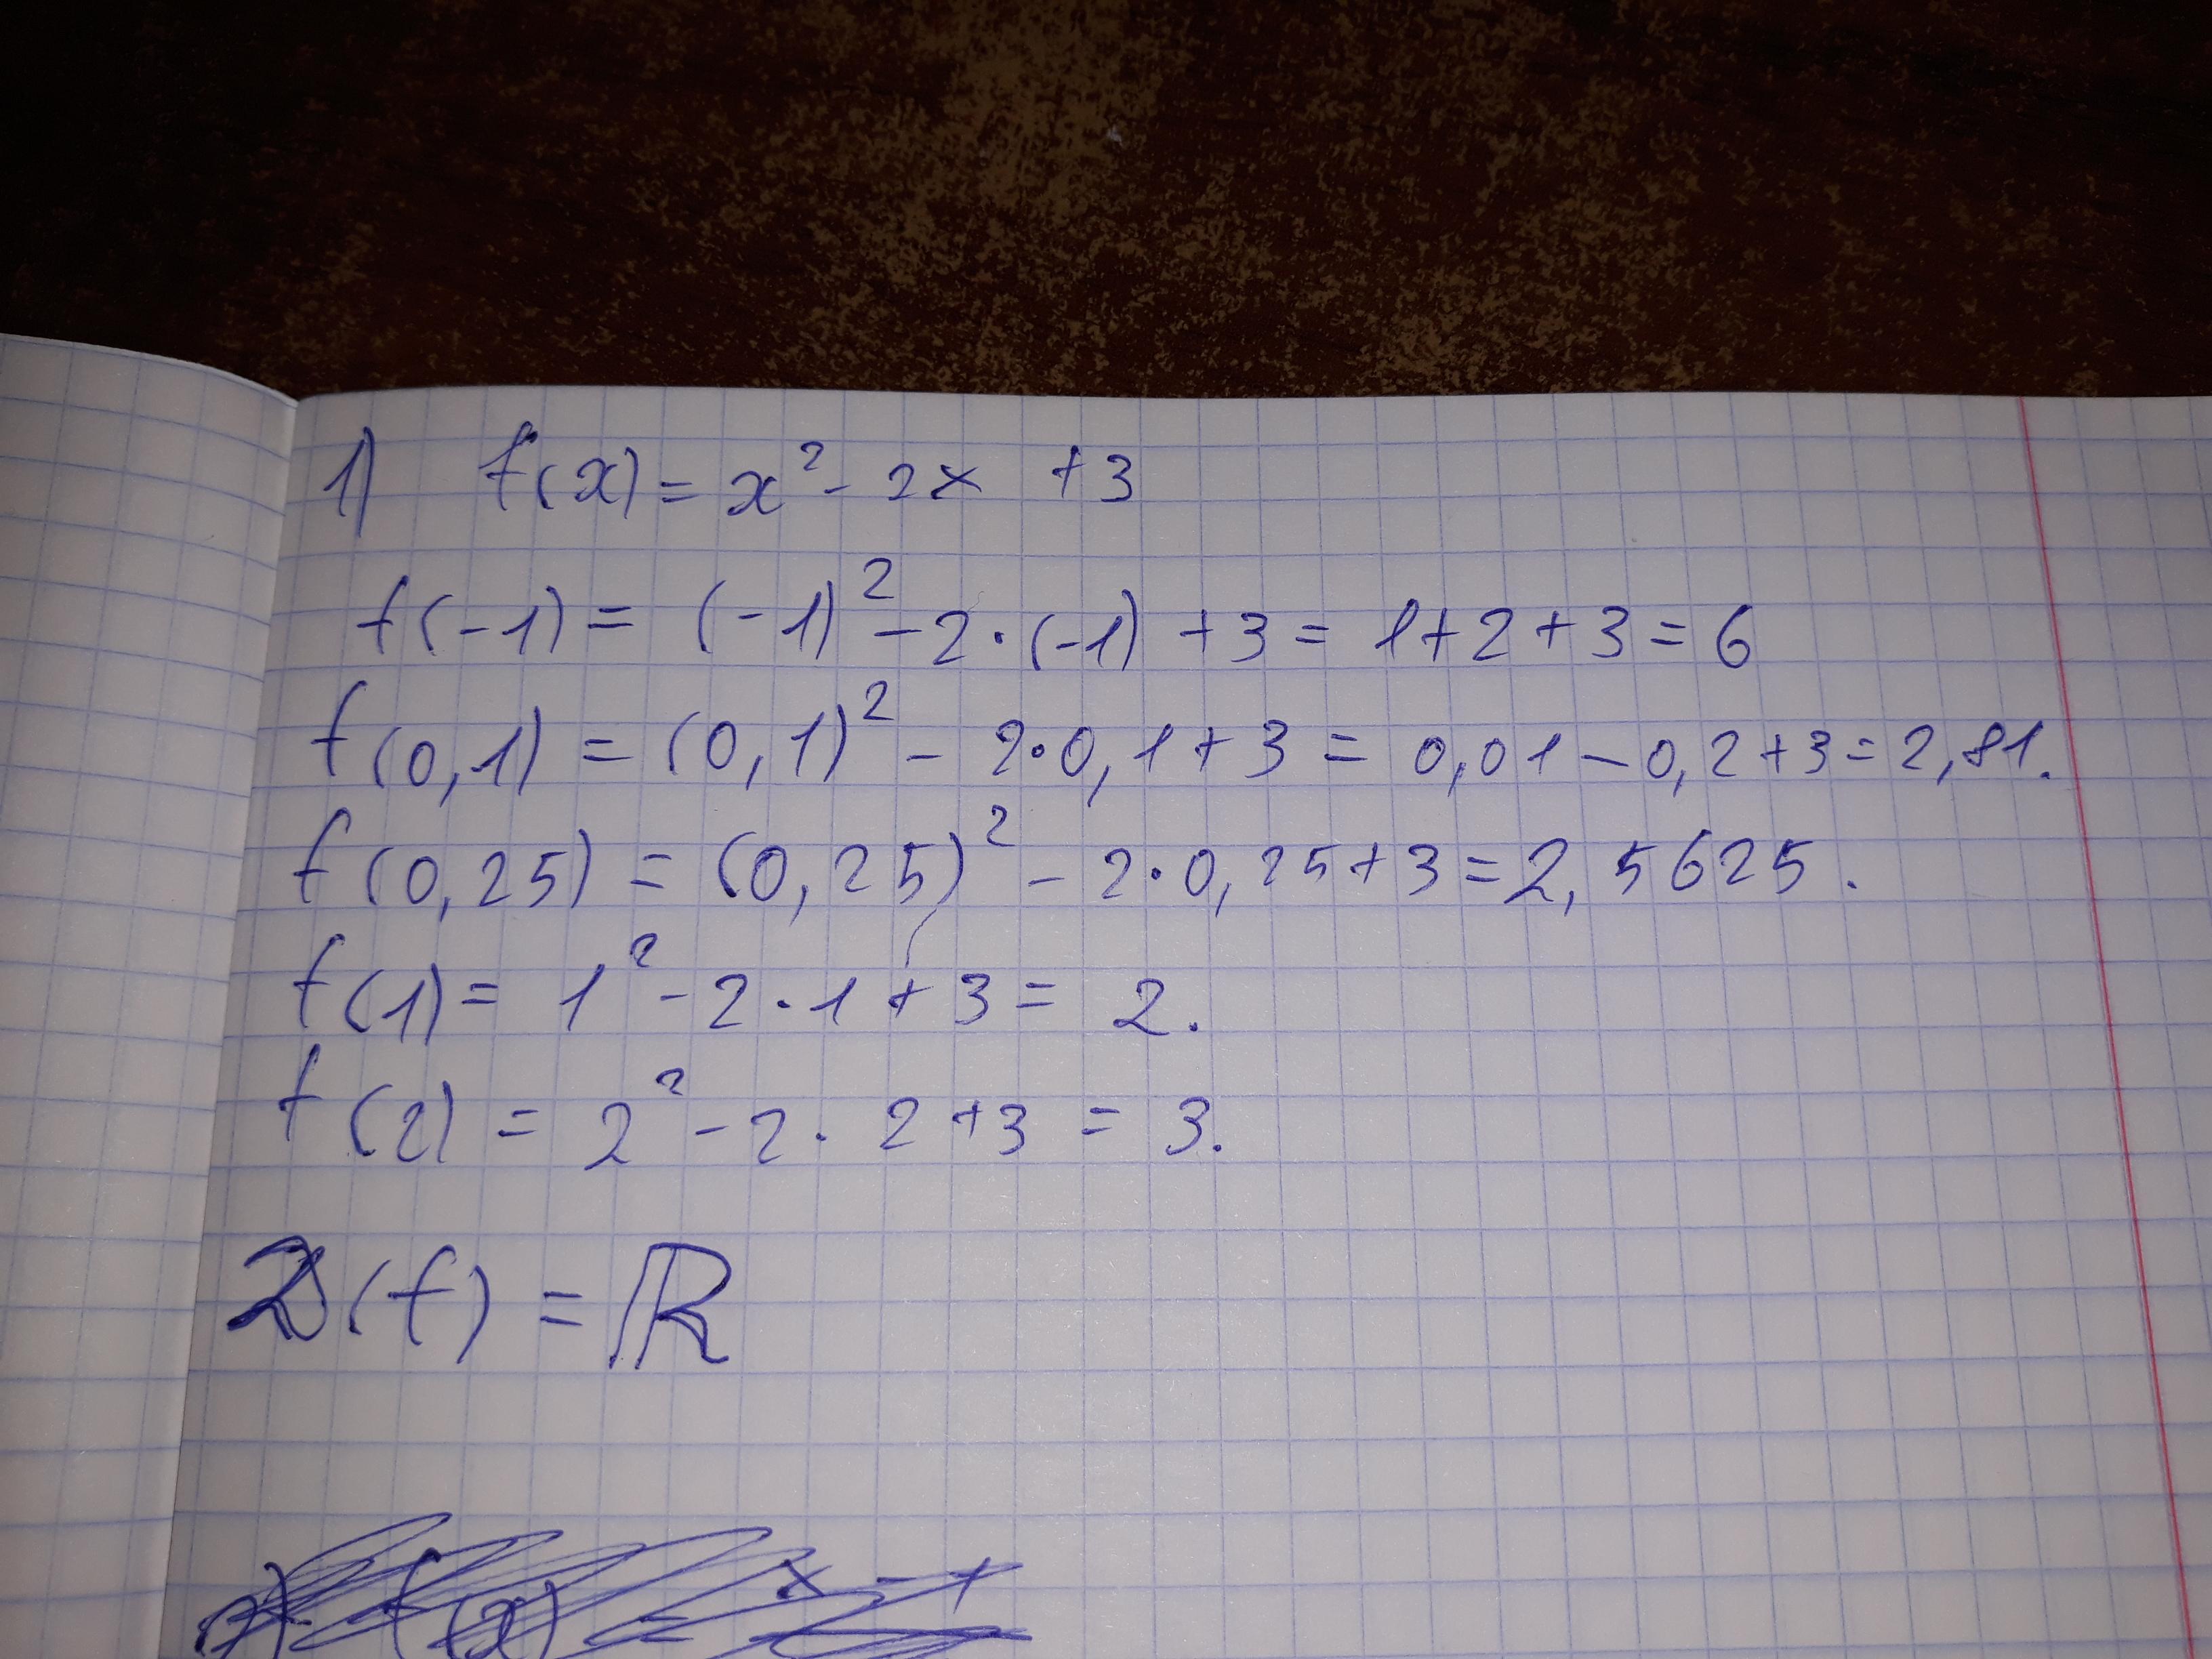 1) f(x) = x² - 2x + 3
f(-1) = (-1)² - 2·(-1) + 3 = 1+2+3 = 6
f(0,1) = (0,1)² - 2·0,1 + 3 = 0,01 - 0,2 + 3 = 2,81.
f(0,25) = (0,25)² - 2·0,25 + 3 = 2,5625.
f(1) = 1² - 2·1 + 3 = 2.
f(2) = 2² - 2·2 + 3 = 3.
D(f) = ℝ